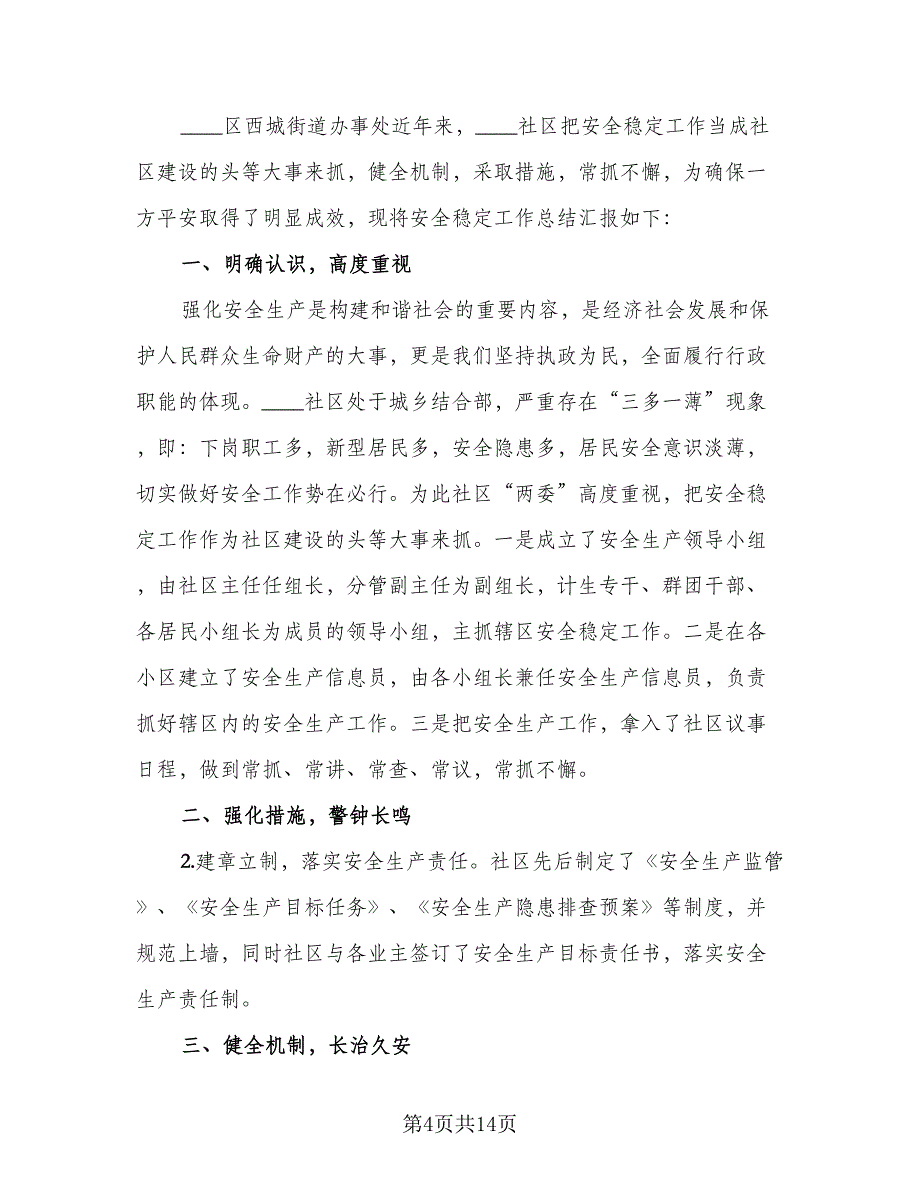 ____区西城街道办事处近年来，____社区把安全稳定工作当成社
区建设的头等大事来抓，健全机制，采取措施，常抓不懈，为确保一
方平安取得了明显成效，现将安全稳定工作总结汇报如下：
一、明确认识，高度重视
强化安全生产是构建和谐社会的重要内容，是经济社会发展和保
护人民群众生命财产的大事，更是我们坚持执政为民，全面履行行政
职能的体现。____社区处于城乡结合部，严重存在“三多一薄”现象
，即：下岗职工多，新型居民多，安全隐患多，居民安全意识淡薄，
切实做好安全工作势在必行。为此社区“两委”高度重视，把安全稳
定工作作为社区建设的头等大事来抓。一是成立了安全生产领导小组
，由社区主任任组长，分管副主任为副组长，计生专干、群团干部、
各居民小组长为成员的领导小组，主抓辖区安全稳定工作。二是在各
小区建立了安全生产信息员，由各小组长兼任安全生产信息员，负责
抓好辖区内的安全生产工作。三是把安全生产工作，拿入了社区议事
日程，做到常抓、常讲、常查、常议，常抓不懈。
二、强化措施，警钟长鸣
2.建章立制，落实安全生产责任。社区先后制定了《安全生产监管
》、《安全生产目标任务》、《安全生产隐患排查预案》等制度，并
规范上墙，同时社区与各业主签订了安全生产目标责任书，落实安全
生产责任制。
三、健全机制，长治久安
第4页共14页